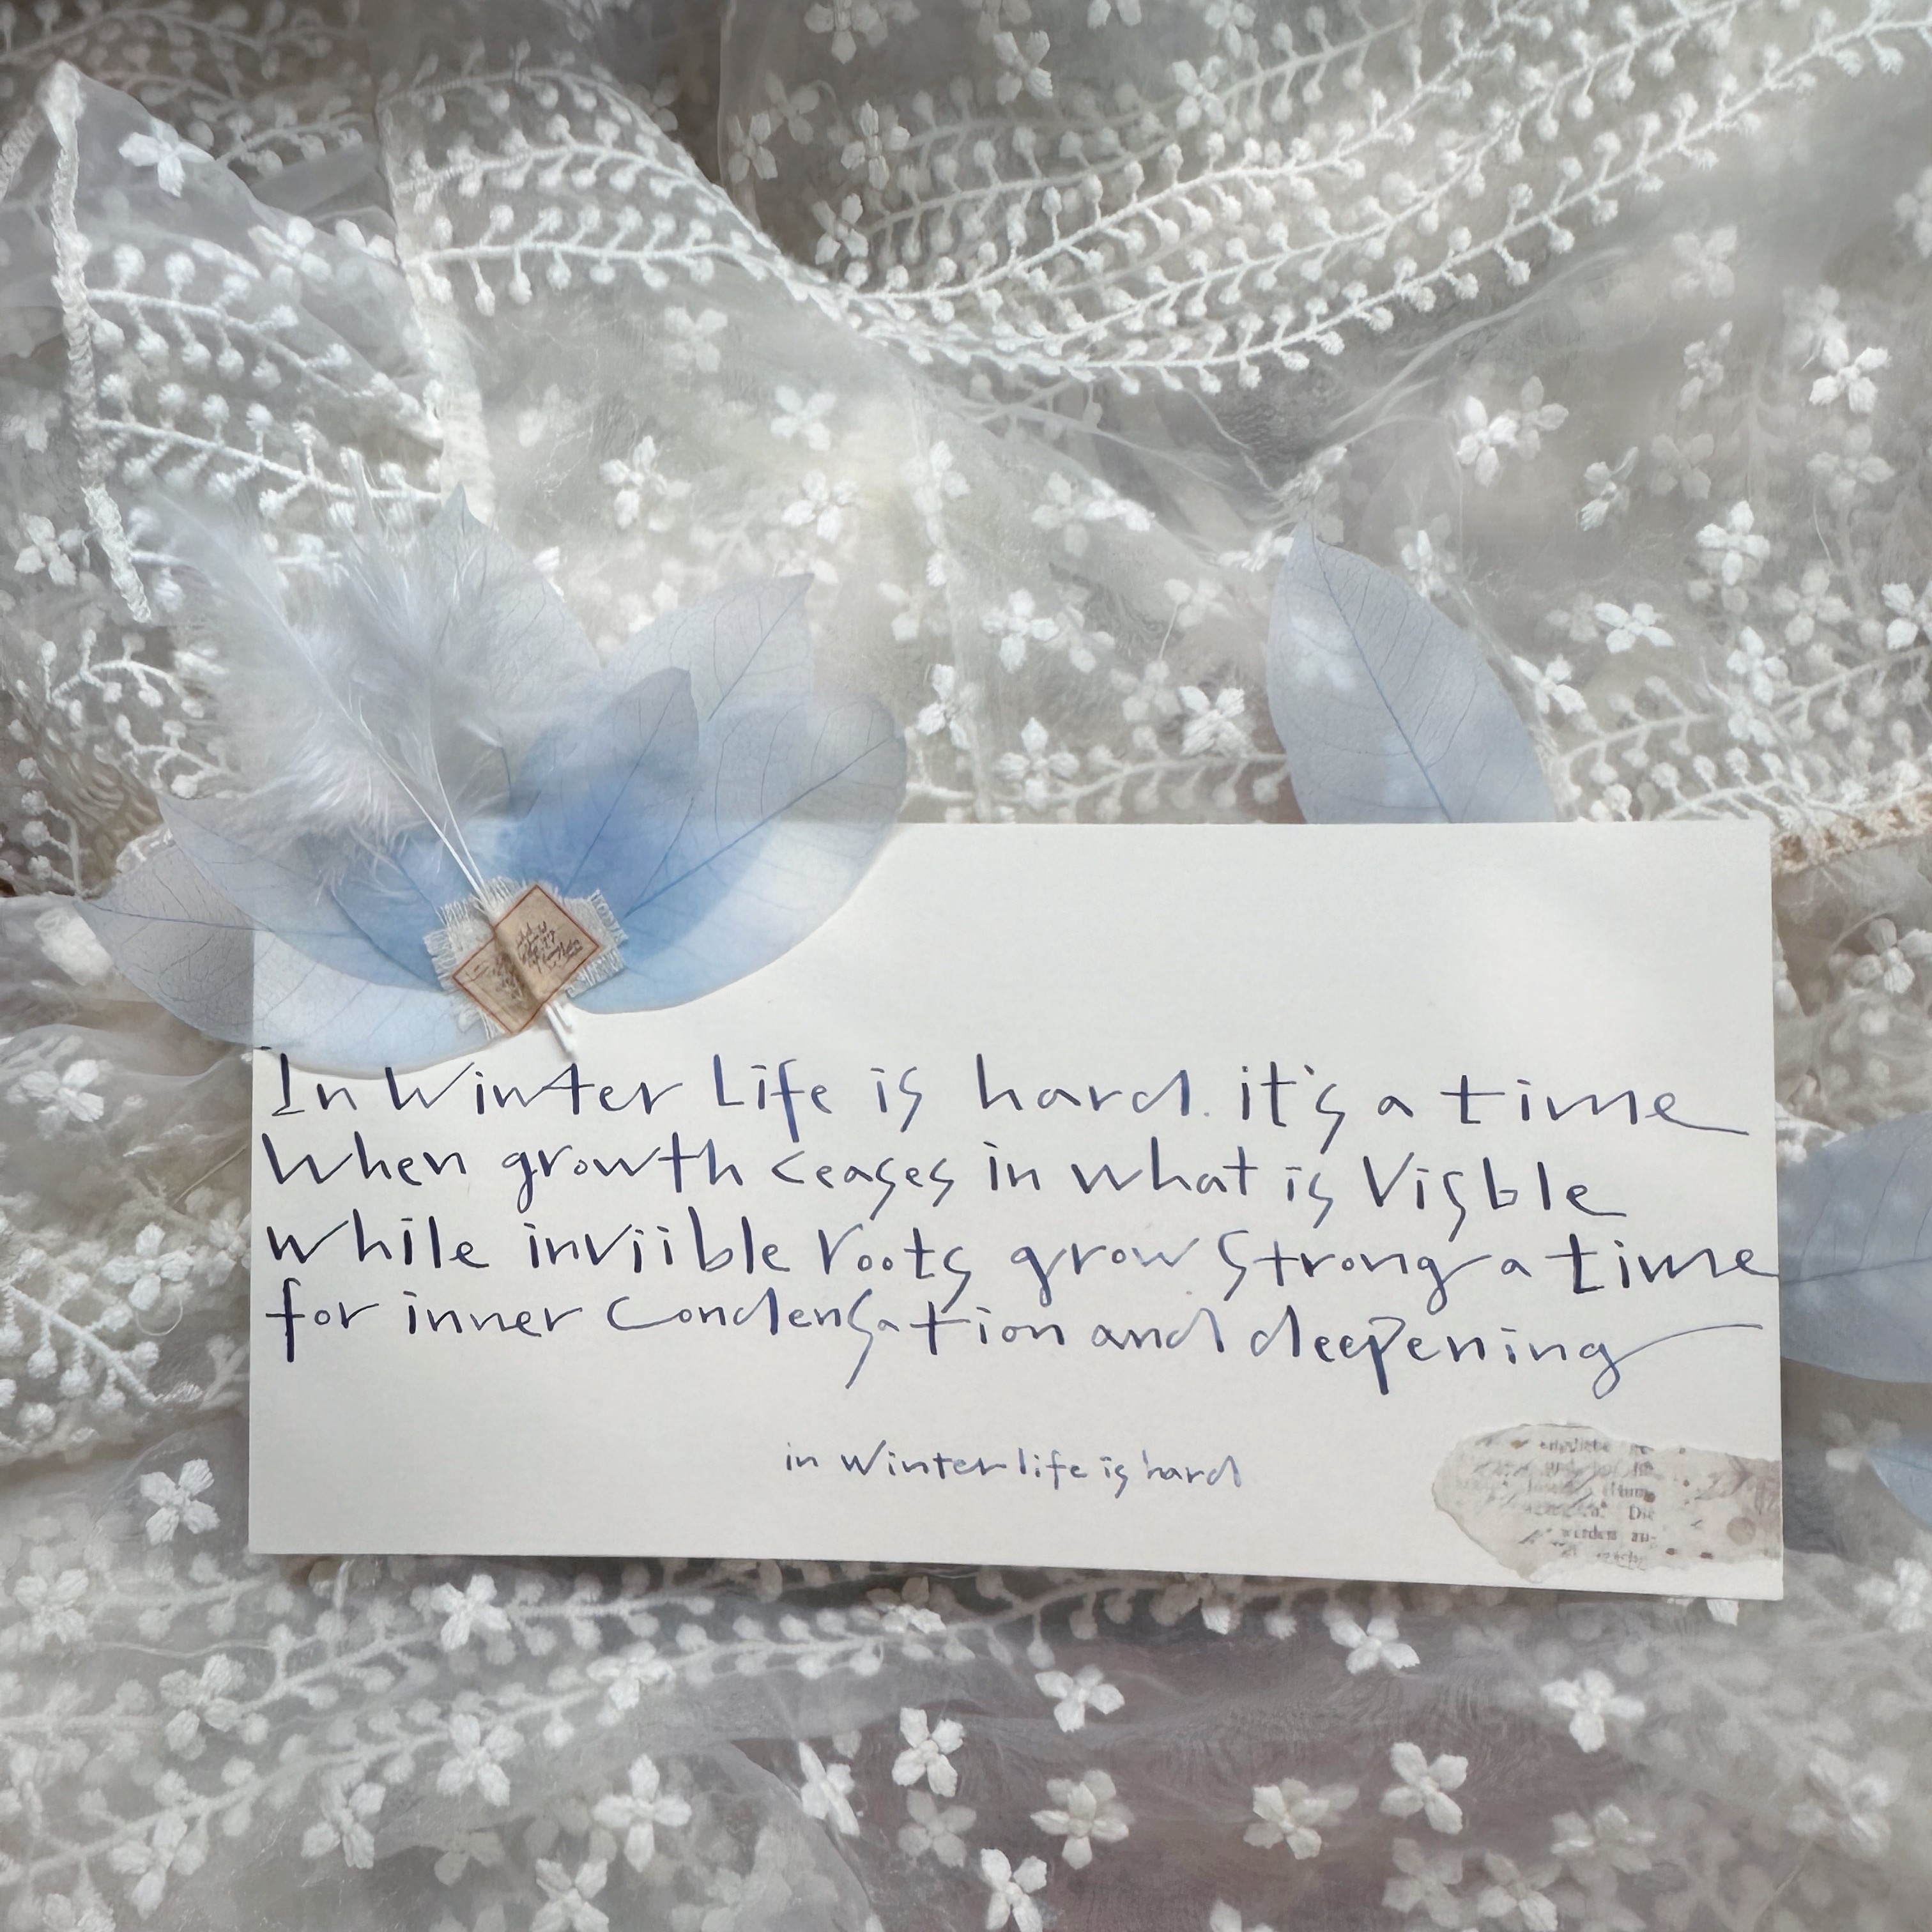 In Winter Life is hard. it's a time
When growth ceases in what is Visble
while inviible roots grow Strong a time
for inner Condensation and deepening
in Winter life is hard
Die
werden zu-